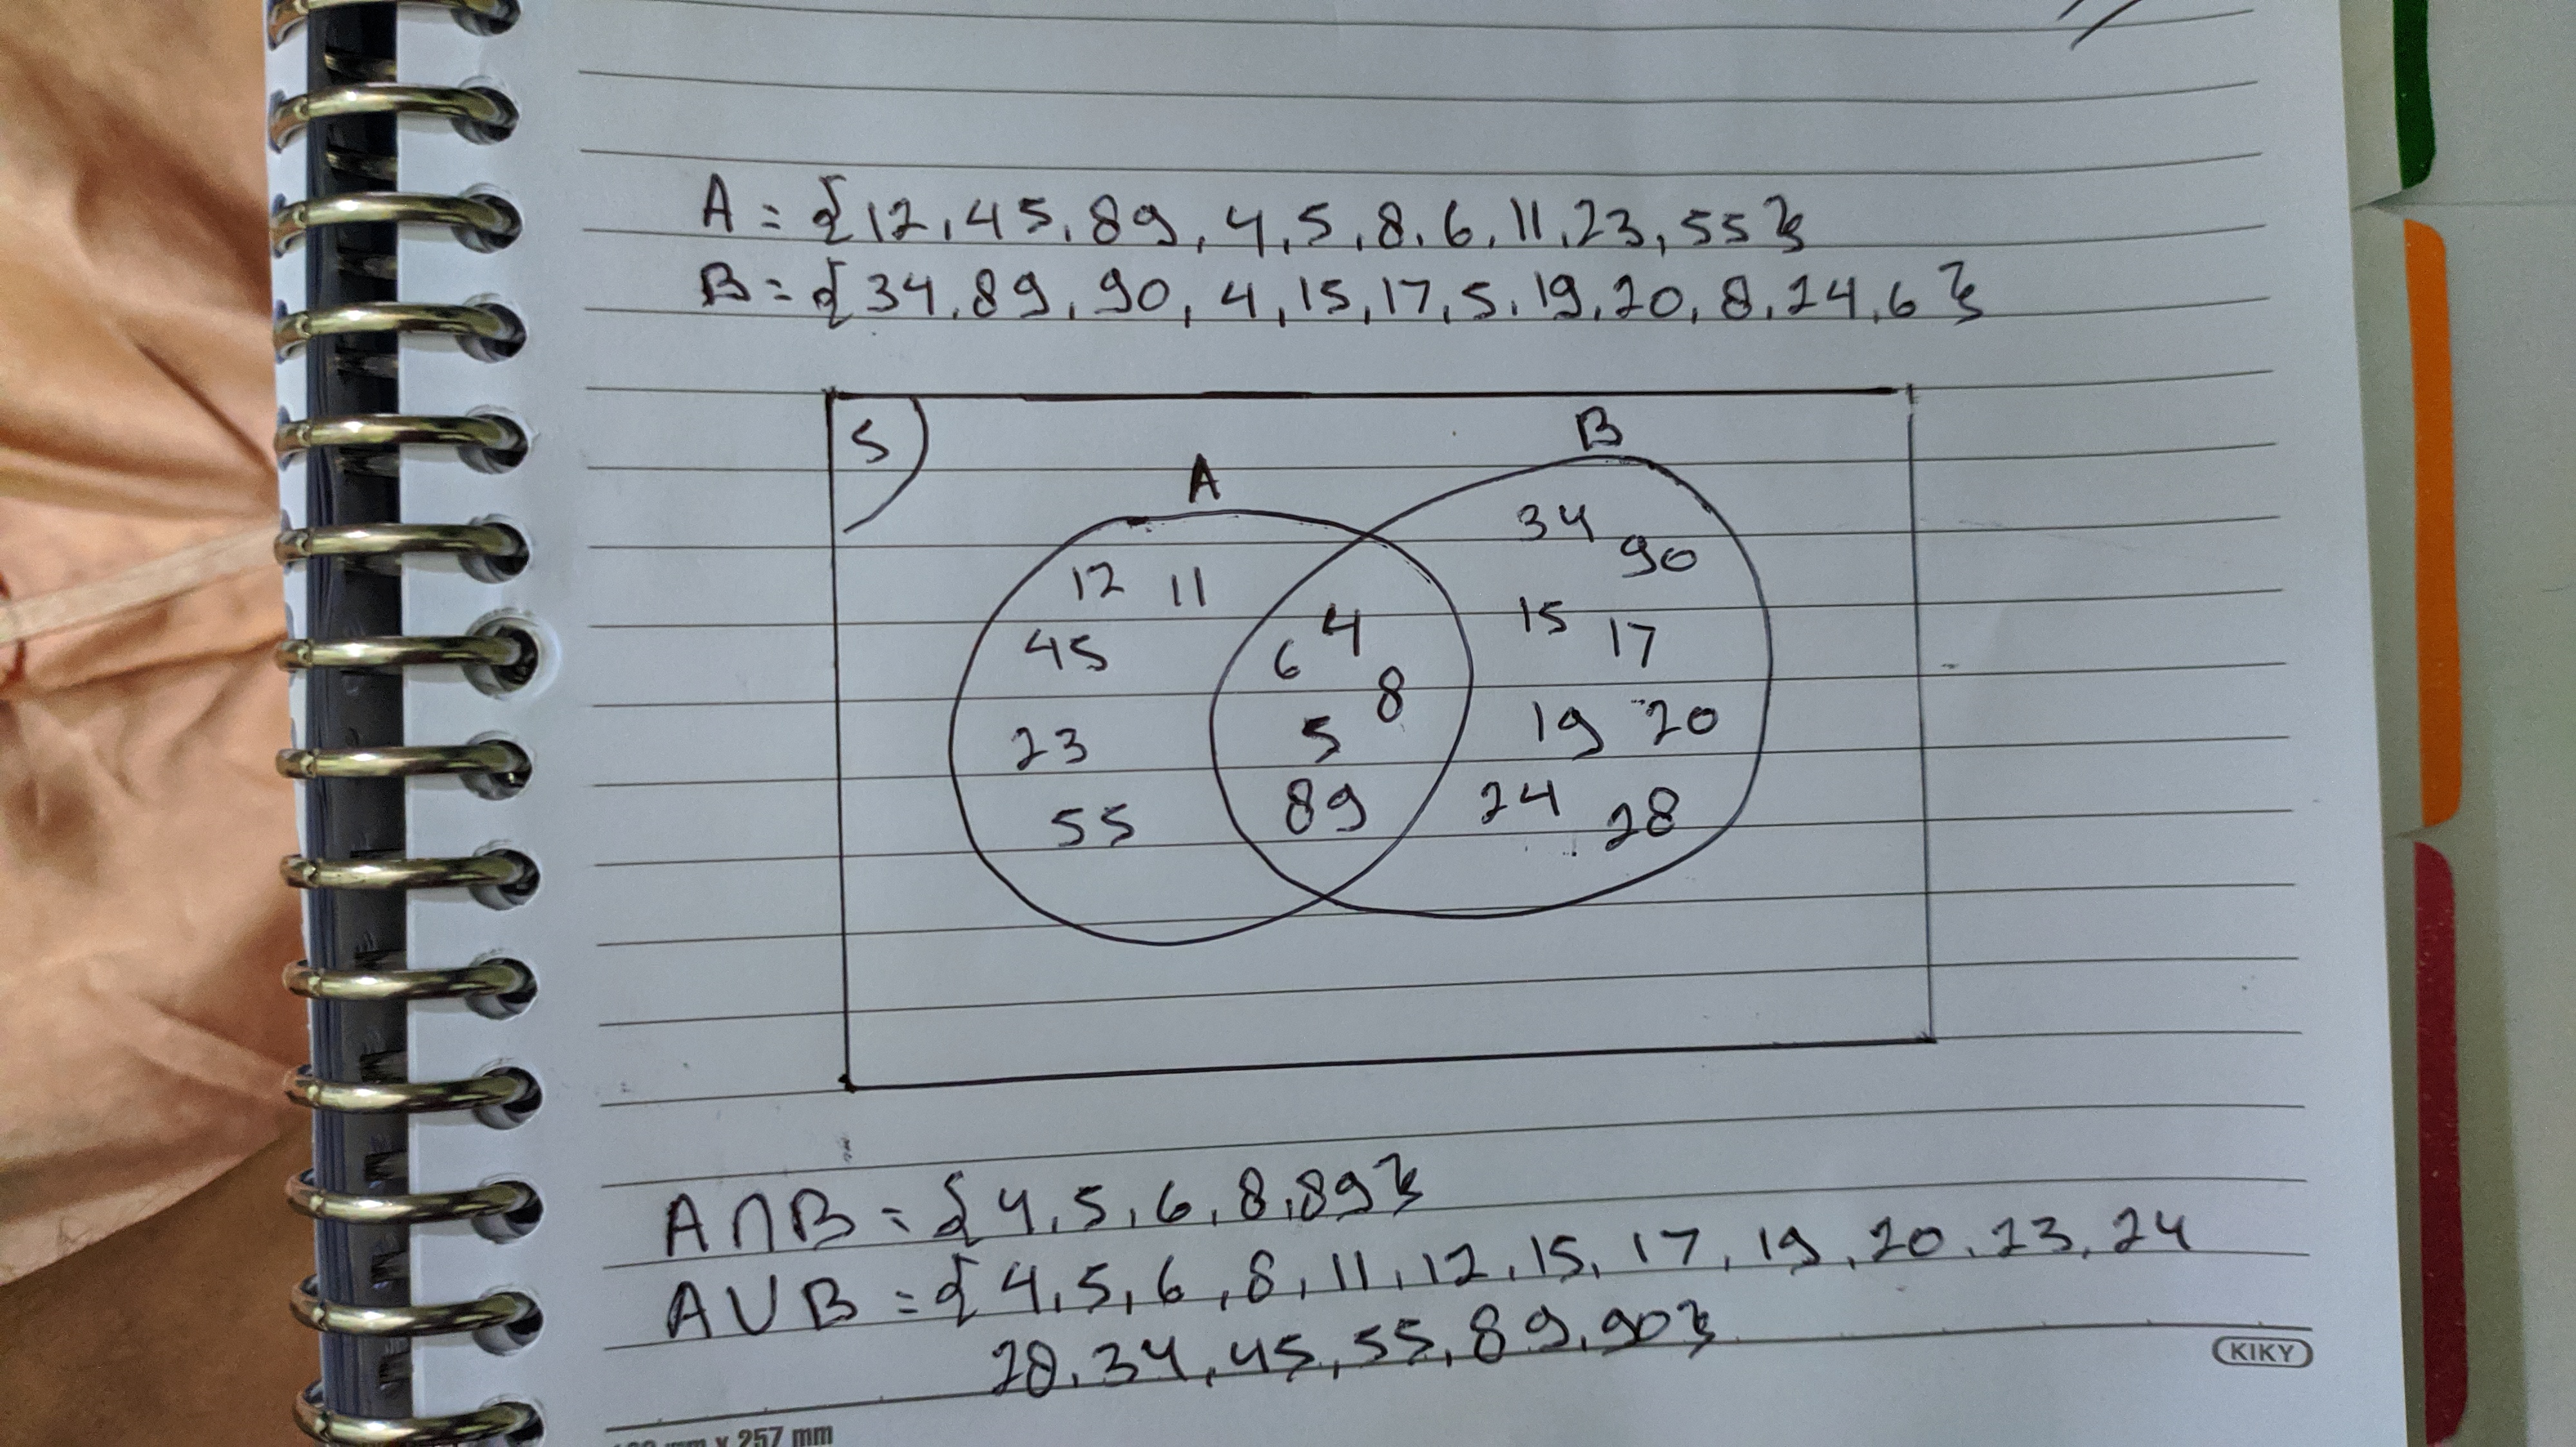 A = { 12, 45, 89, 4, 5, 8, 6, 11, 23, 55 }
B = { 34, 89, 90, 4, 15, 17, 5, 19, 20, 8, 24, 6 }
S
A
B
12 11
45
23
55
6 4
5 8
89
34 90
15 17
19 20
24 28
A ∩ B = { 4, 5, 6, 8, 89 }
A ∪ B = { 4, 5, 6, 8, 11, 12, 15, 17, 19, 20, 23, 24
28, 34, 45, 55, 89, 90 }
x 257 mm
KIKY